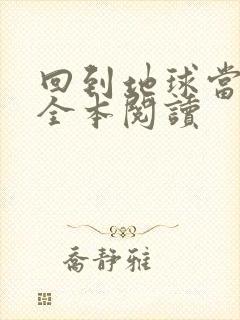 回到地球當
全本閱讀
喬靜雅